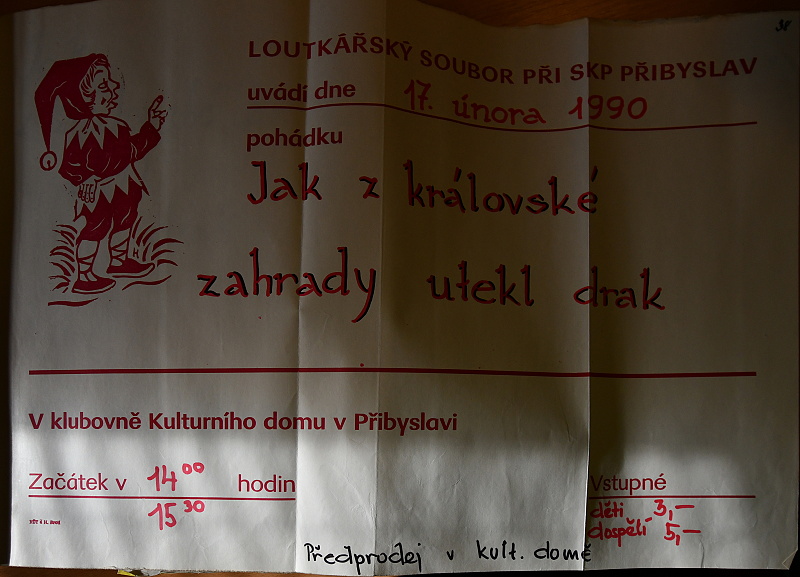 38
LOUTKÁŘSKÝ SOUBOR PŘI SKP PŘIBYSLAV
uvádí dne 17. února 1990
pohádku
Jak z královské
zahrady utekl drak
V klubovně Kulturního domu v Přibyslavi
Začátek v 14⁰⁰ hodin
15³⁰
Vstupné
děti 3,—
dospělí 5,—
Předprodej v kult. domě